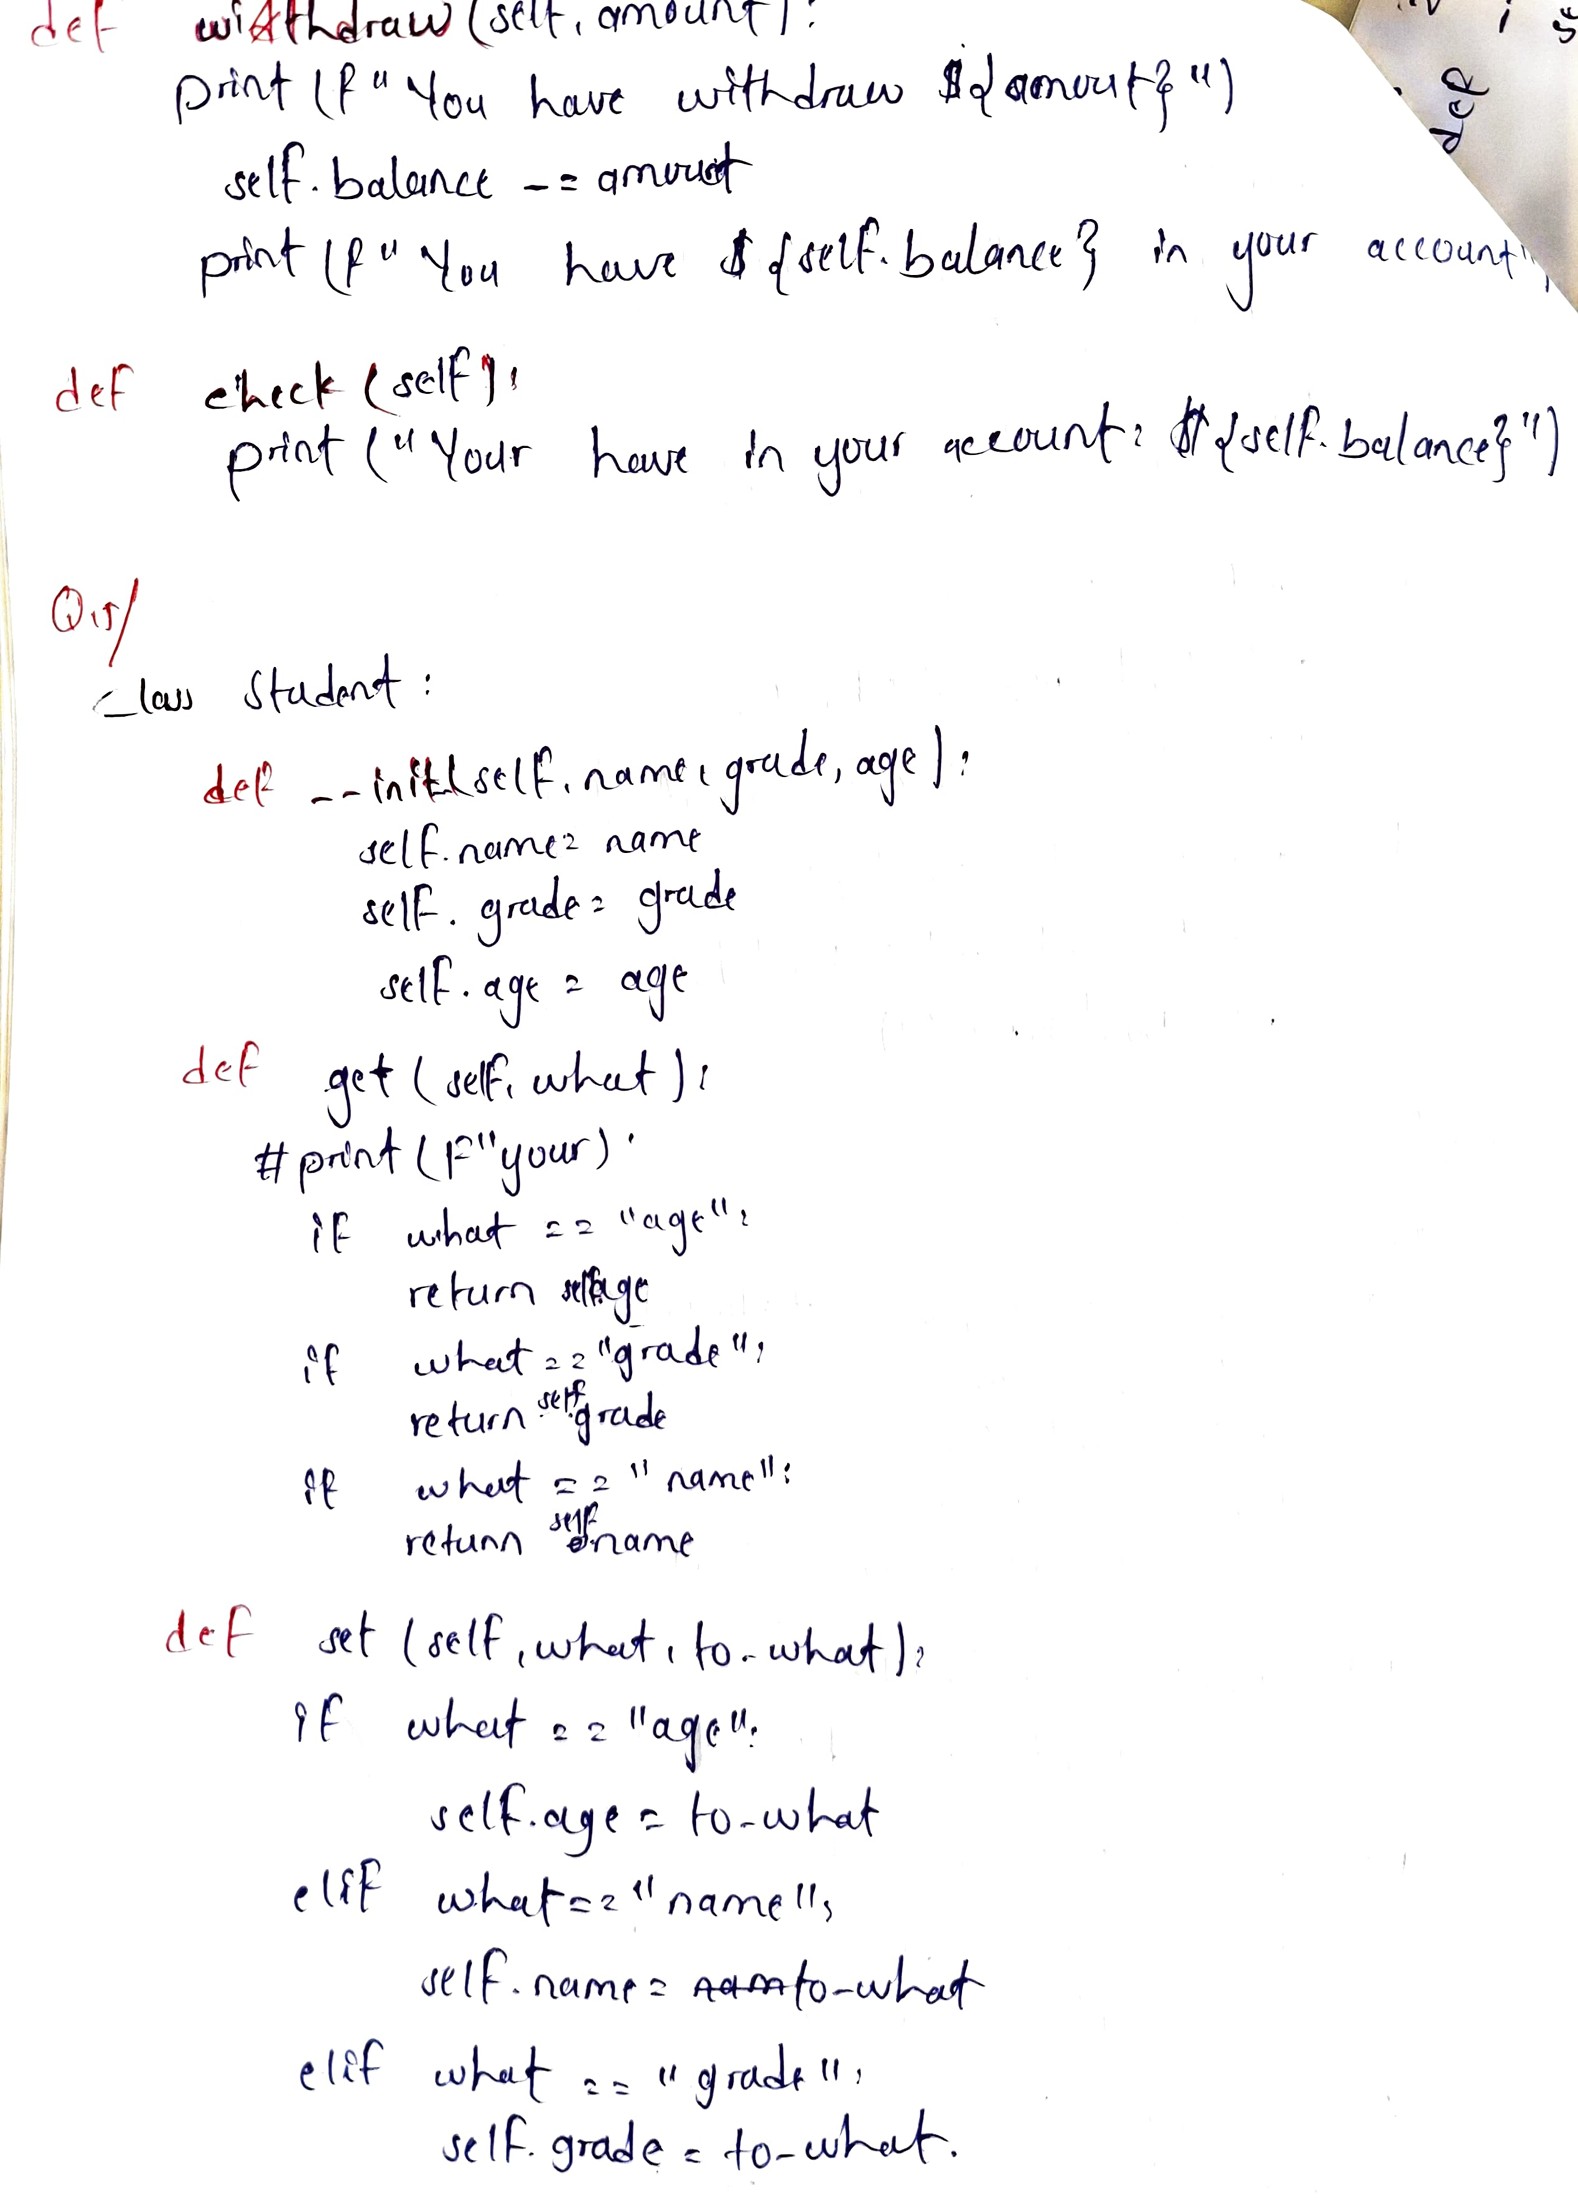 def withdraw(self, amount):
print (f"You have withdraw ${amout}")
self.balance -= amount
print (f"You have ${self.balance} in your account")
def
def check (self):
print ("Your have in your account: ${self.balance}")
Q15/
class Student:
def __init(self, name, grade, age):
self.name = name
self.grade = grade
self.age = age
def get (self, what):
#print (F"your)
if what == "age":
return self.age
if what == "grade":
return self.grade
if what == "name":
return self.name
def set (self, what, to-what):
if what == "age":
self.age = to-what
elif what == "name":
self.name = to-what
elif what == "grade":
self.grade = to-what.